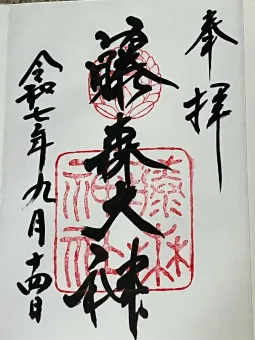 奉拝
藤森大神
令和七年九月十四日
藤森
神社